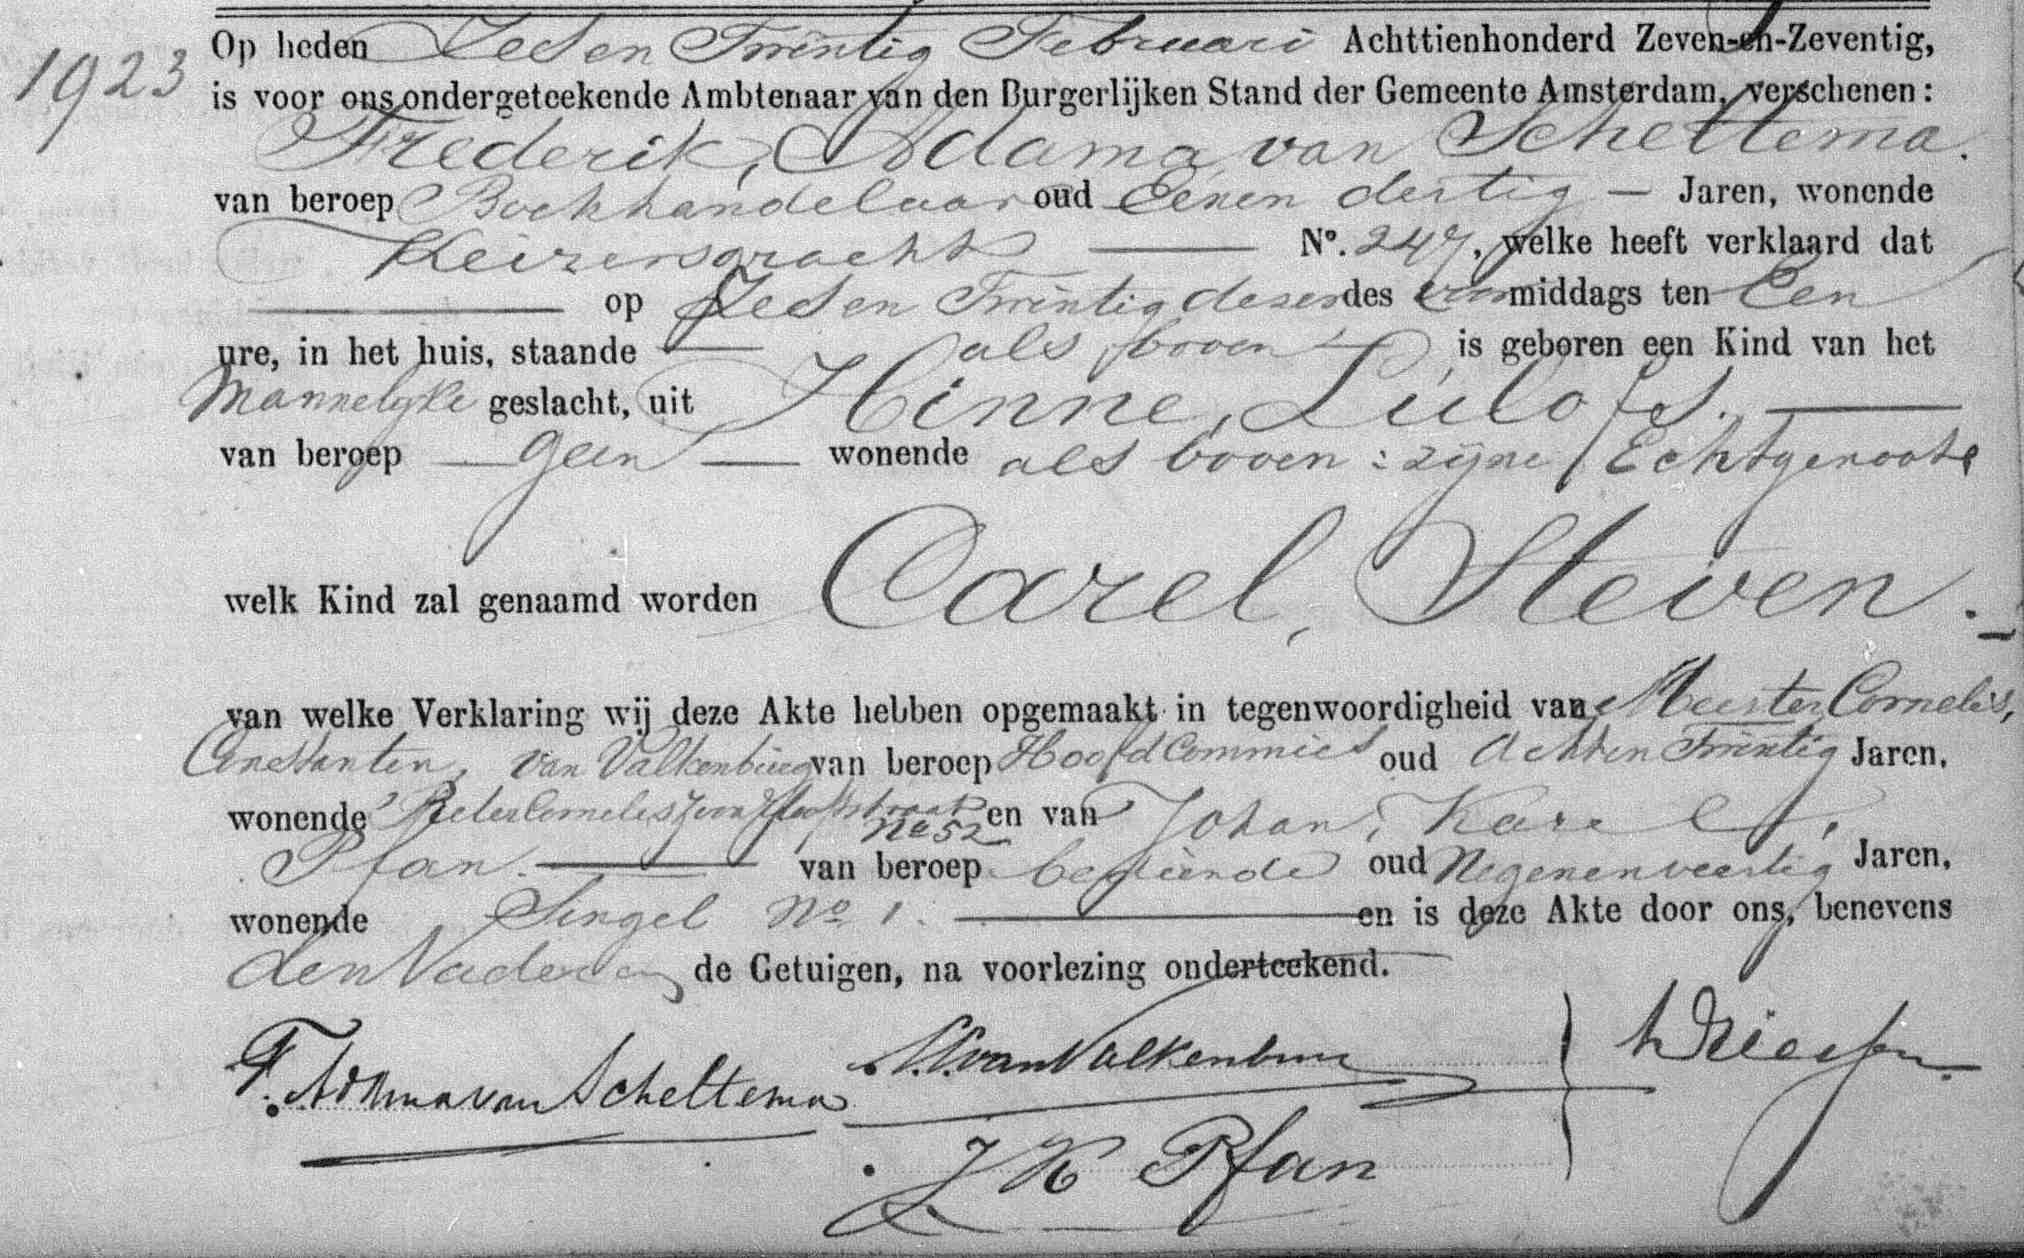 1923
Op heden Zes en Twintig Februari Achttienhonderd Zeven-en-Zeventig,
is voor ons ondergeteekende Ambtenaar van den Burgerlijken Stand der Gemeente Amsterdam, verschenen:
Frederik, Adama van Scheltema.
van beroep Boekhandelaar oud Eenen dertig — Jaren, wonende
Keizersgracht — No. 247, welke heeft verklaard dat
— op Zes en Twintig dezer des middags ten Een
ure, in het huis, staande — als boven — is geboren een Kind van het
Mannelyke geslacht, uit Hinne, Lulofs. —
van beroep — geen — wonende als boven: zijne Echtgenoote
welk Kind zal genaamd worden Carel, Steven. —
van welke Verklaring wij deze Akte hebben opgemaakt in tegenwoordigheid van Meester Cornelis,
Constanten, van Valkenburg van beroep Hoofd Commies oud Acht en Twintig Jaren,
wonende Pieter Cornelis zoon Hooftstraat No 52 en van Johan, Karel,
Pfan. — van beroep bediende oud Negenenveertig Jaren,
wonende Singel No 1. — en is deze Akte door ons, benevens
den Vader en de Getuigen, na voorlezing onderteekend.
F. Adama van Scheltema
C.C. van Valkenburg
J K Pfan